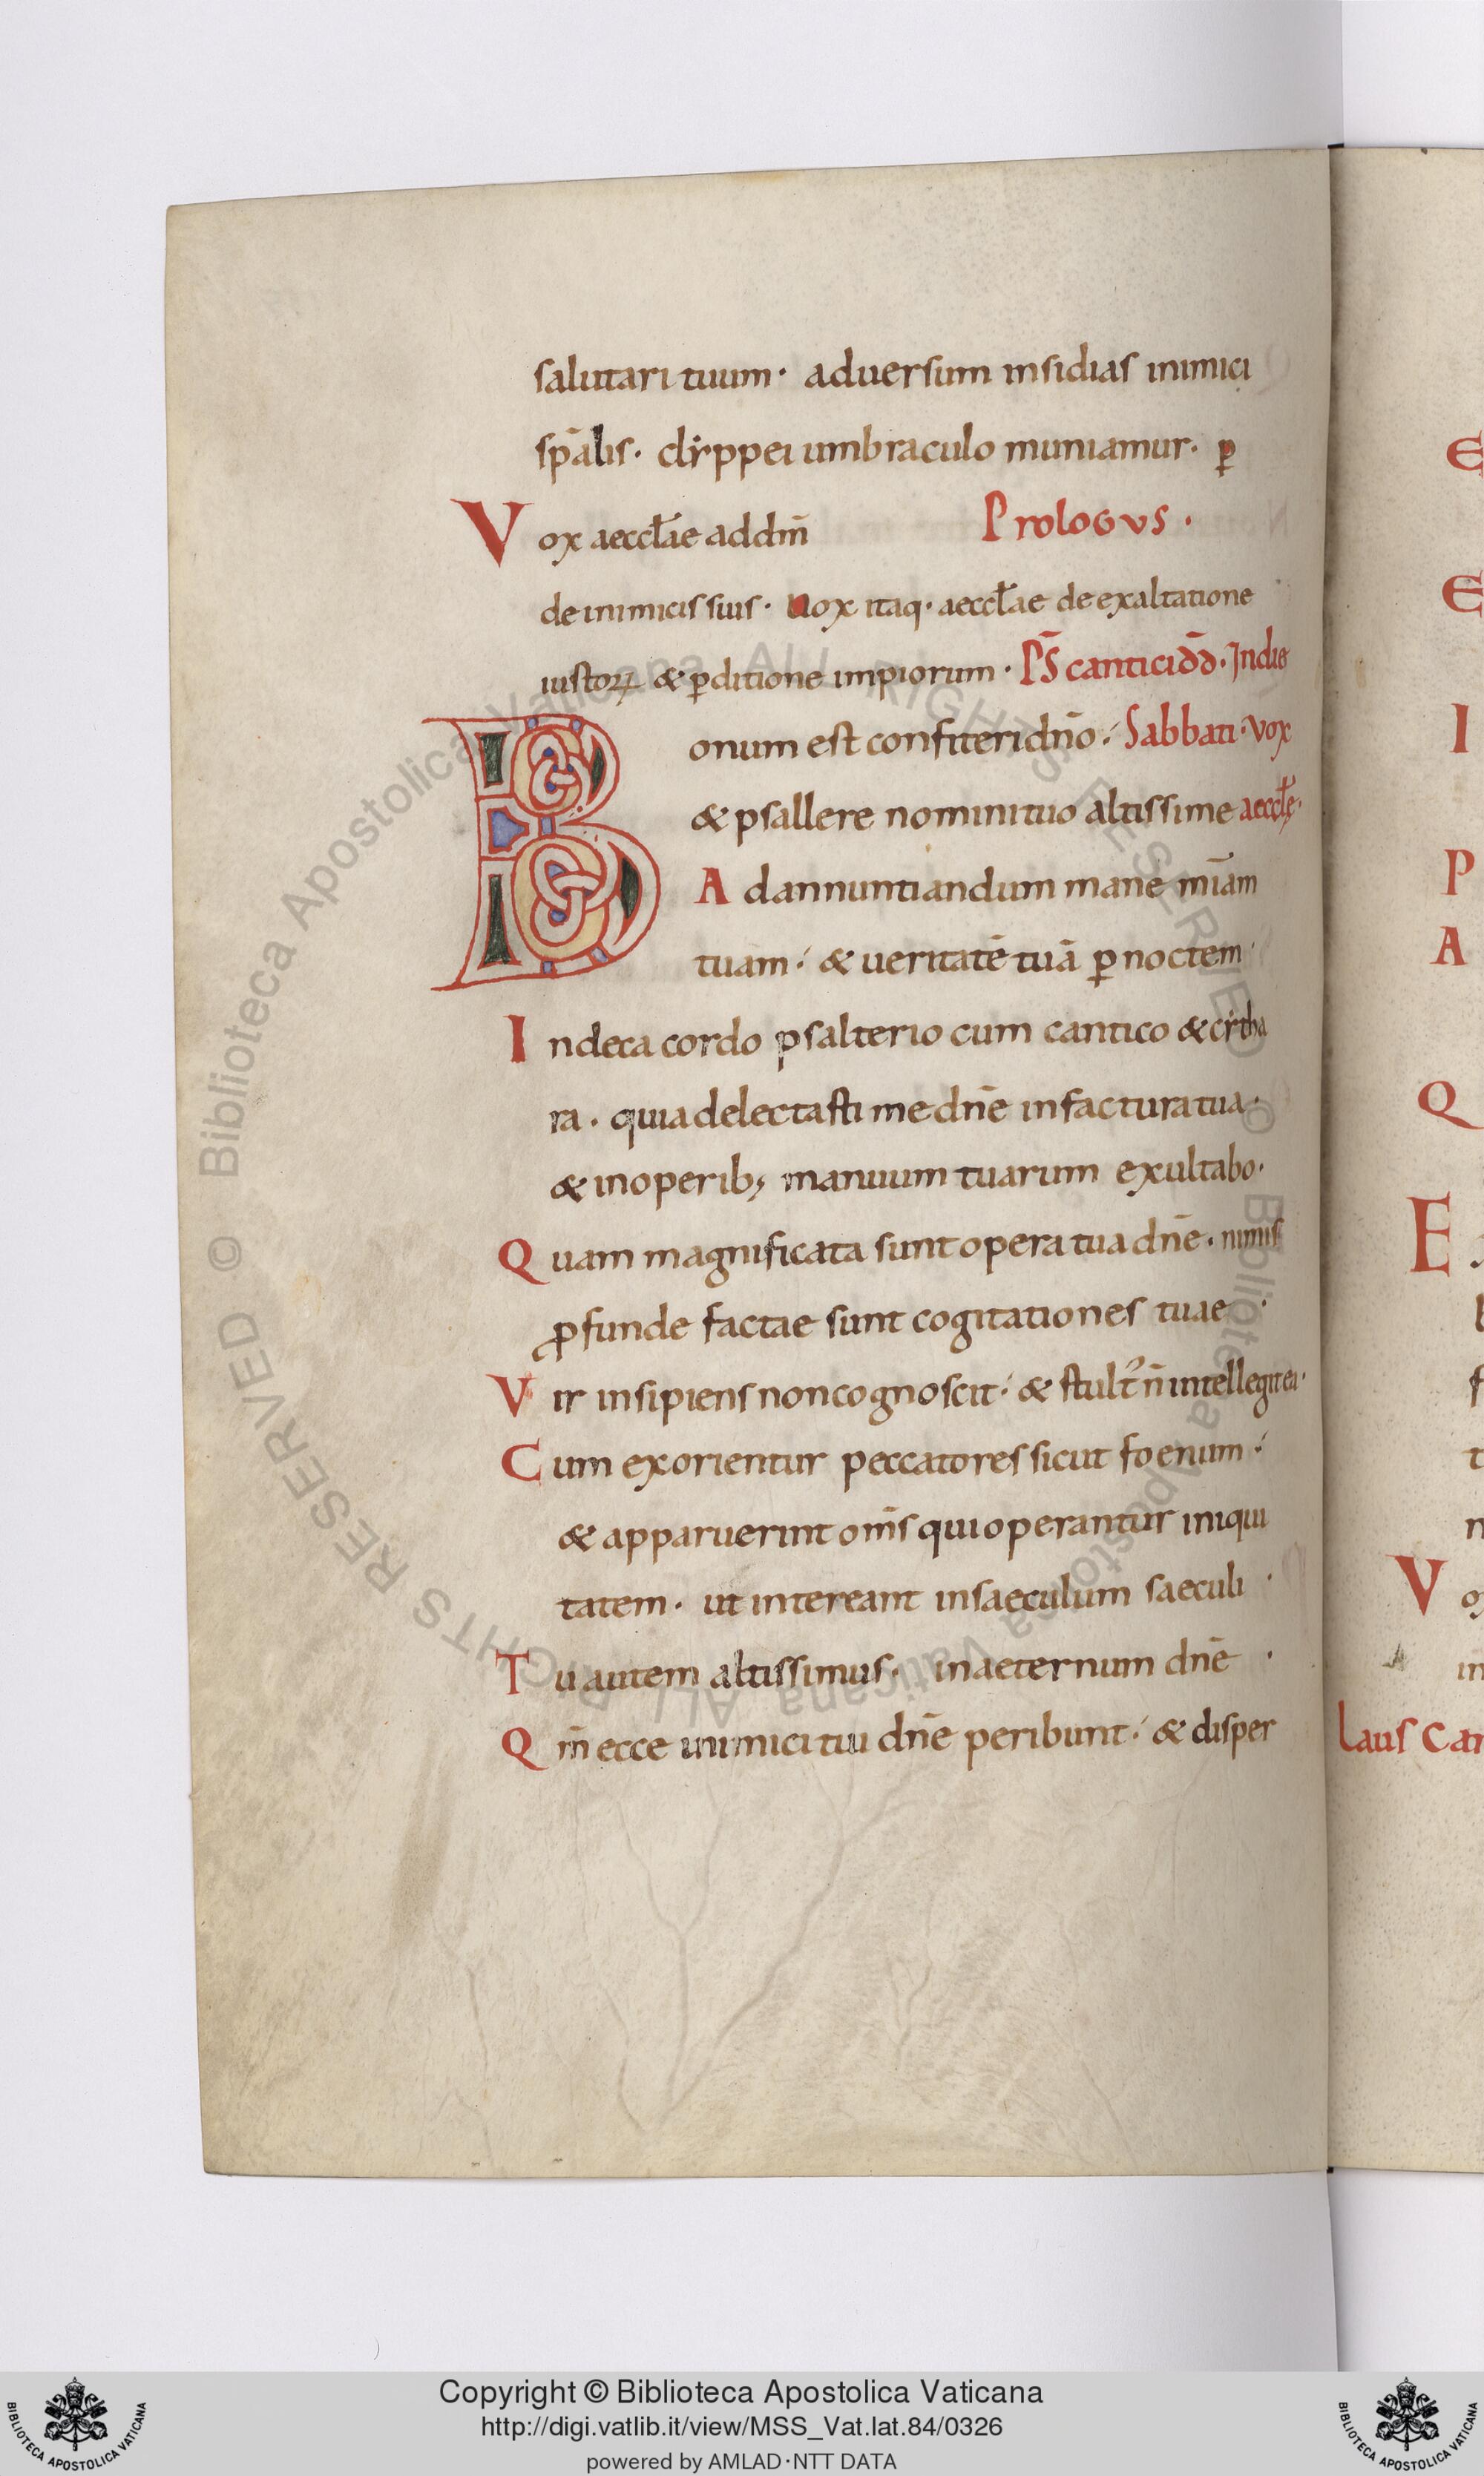 salutari tuum· aduersum insidias inimici
sp̄alis· clẏppei umbraculo muniamur· ꝑ
Vox aeccłae addm̄ Prologus·
de inimicis suis· uox itaq· aeccłae de exaltatione
iustoꝝ & ꝑditione impiorum· PS̄ canticidd̄· In die
Bonum est confiteri dn̄o· Sabbati· vox
& psallere nomini tuo altissime aeccłę·
Adannuntiandum mane mīam
tuam· & ueritatē tuā ꝑ noctem·
Indeca cordo psalterio cum cantico & cẏtha
ra· quia delectasti me dn̄e in factura tua·
& in operib; manuum tuarum exultabo·
Quam magnificata sunt opera tua dn̄e· nimis
ꝓfunde factae sunt cogitationes tuae·
Vir insipiens non cognoscit· & stultꝰ n̄ intellegit ea·
Cum exorientur peccatores sicut foenum·
& apparuerint om̄s qui operantur iniqui
tatem· ut intereant in saeculum saeculi·
Tu autem altissimus· in aeternum dn̄e·
Qm̄ ecce inimici tui dn̄e peribunt· & disper
E
E
I
P
A
Q
E
V
Laus Can
© Biblioteca Apostolica Vaticana ALL RIGHTS RESERVED © Biblioteca Apostolica Vaticana ALL RIGHTS RESERVED
BIBLIOTECA APOSTOLICA VATICANA
Copyright © Biblioteca Apostolica Vaticana
http://digi.vatlib.it/view/MSS_Vat.lat.84/0326
powered by AMLAD·NTT DATA
BIBLIOTECA APOSTOLICA VATICANA